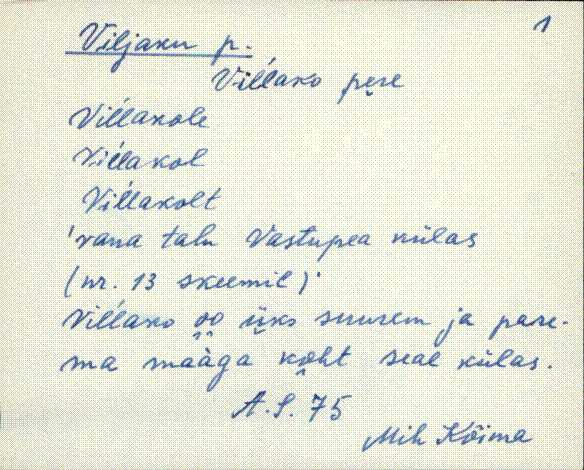 1
Viljaku p.
Vil´l´ako pere
Vil´l´akole
Vil´l´akol
Vil´l´akolt
'vana talu Vastupea külas
(nr. 13 skeemil)'
Vil´l´ako oo üks suurem ja pare-
ma maaga koht seal külas.
A.S. 75
Mih Kõima